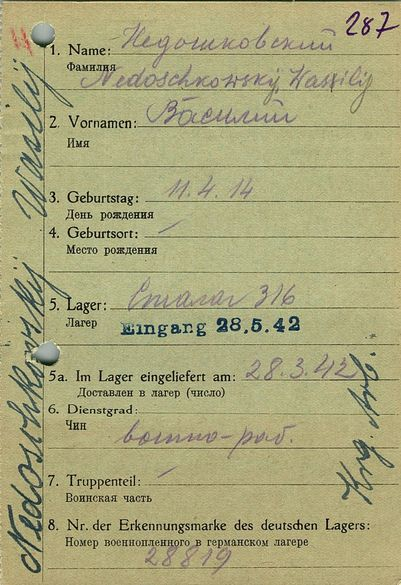 287
1. Name: Недошковский
Фамилия
Nedoschkowskij, Wassilij
2. Vornamen: Василий
Имя
3. Geburtstag: 11.4.14
День рождения
4. Geburtsort: —
Место рождения
5. Lager: Сталаг 316
Лагер
Eingang 28.5.42
5a. Im Lager eingeliefert am: 28.3.42
Доставлен в лагер (число)
6. Dienstgrad:
Чин
военно-раб.
7. Truppenteil: —
Воинская часть
8. Nr. der Erkennungsmarke des deutschen Lagers:
Номер военнопленного в германском лагере
28819
Nedoschkowskij Wassilij